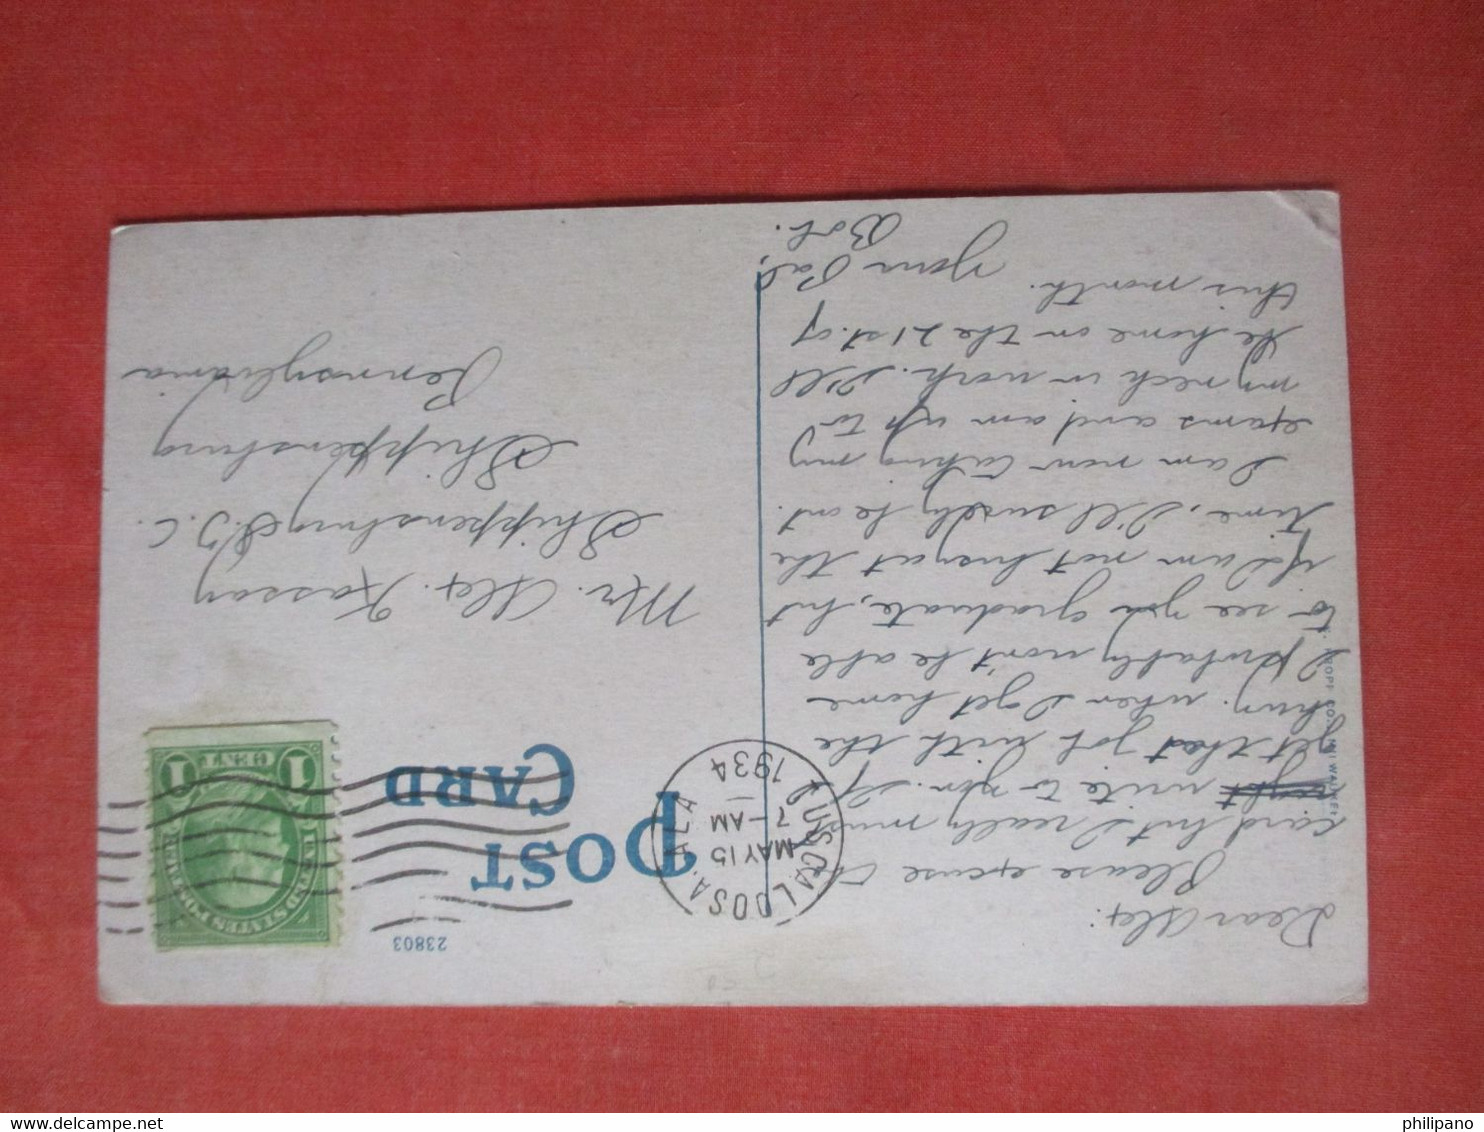 23803
POST
CARD
TUSCALOOSA. ALA
MAY 15
7-AM
1934
UNITED STATES POSTAGE
1 CENT 1
Dear Alex:
Please excuse the
card but I really must
write to you. If
get that job with the
when I get home
I probably won't be able
to see you graduate, but
if I am not busy at the
time, I'll surely be out.
I am now taking my
exams and am up to
my neck in work. I'll
be home on the 21st. of
this month.
Your Pal,
Bob.
Mr. Alex. Kassay
Shippensburg S.T.C.
Shippensburg
Pennsylvania
KROPP CO., MILWAUKEE
philipano